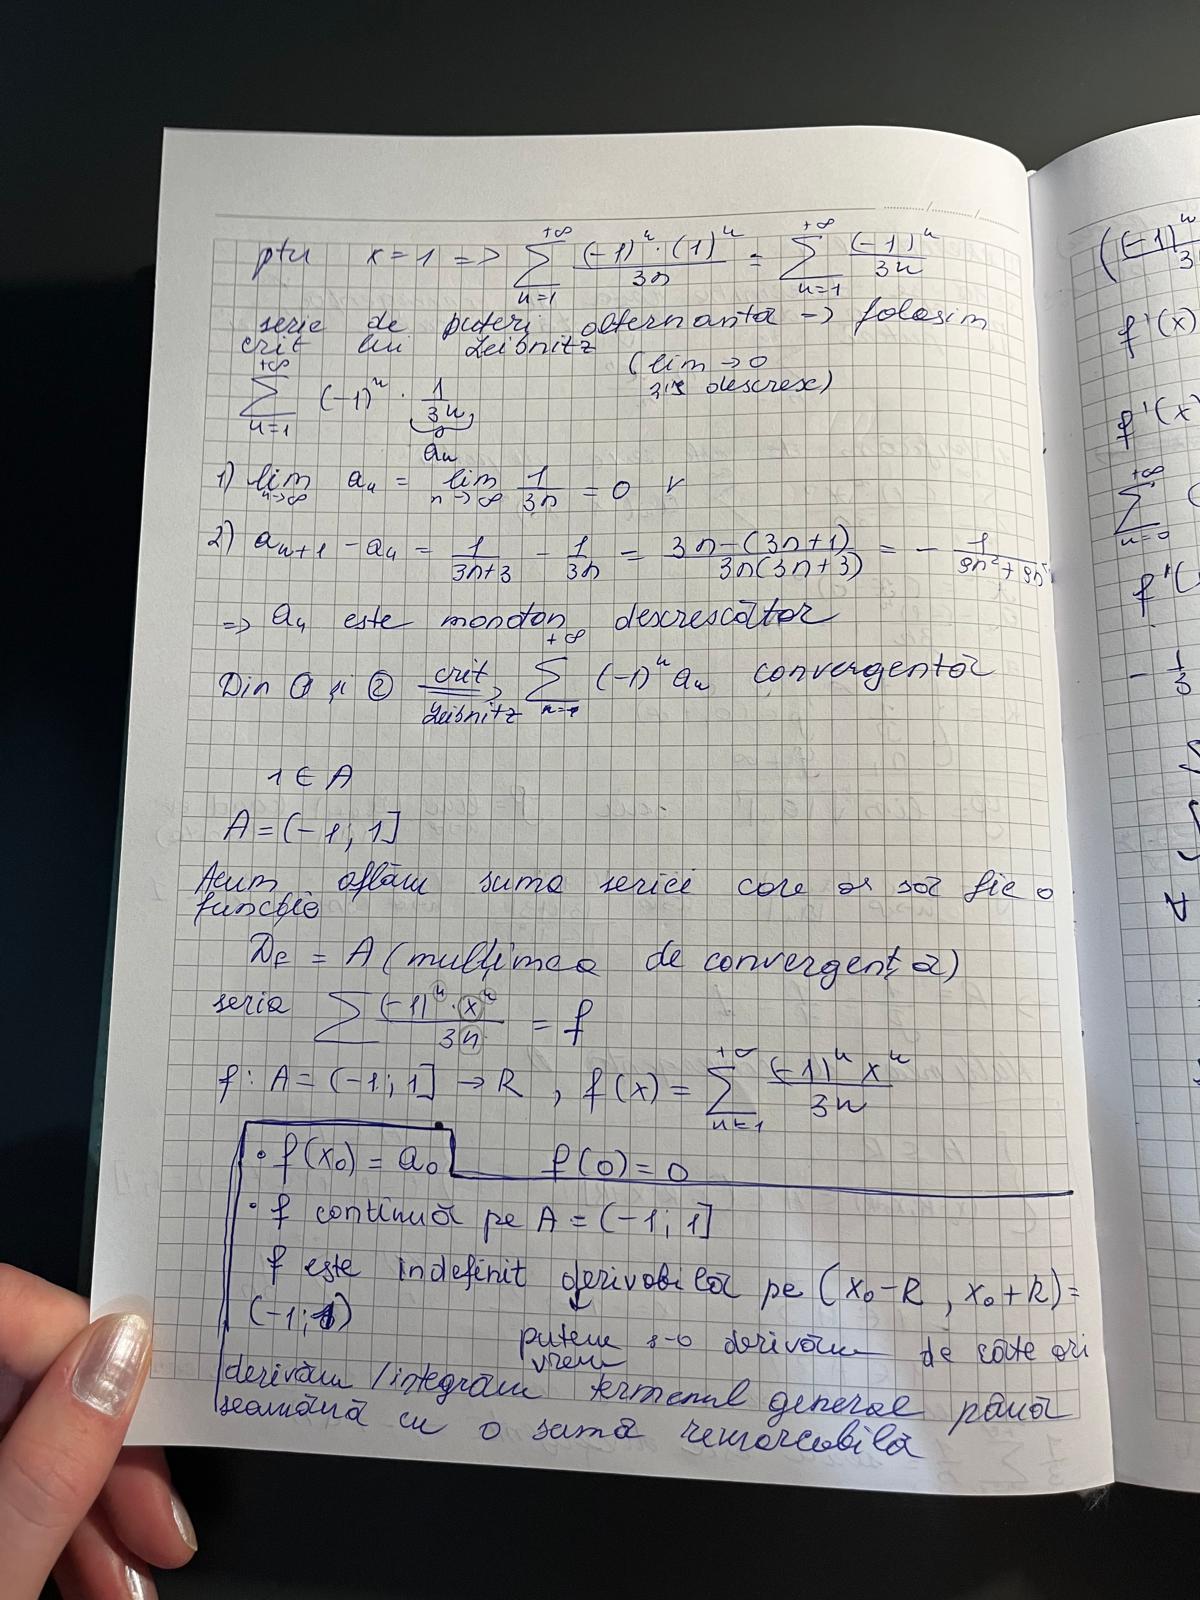 ptu x = 1 => \sum_{n=1}^{+∞} \frac{(-1)^n · (1)^n}{3n} = \sum_{n=1}^{+∞} \frac{(-1)^n}{3n}
serie de puteri alternantă -> folosim
crit lui Leibnitz
(lim -> 0
descresc)
\sum_{n=1}^{+∞} (-1)^n · \frac{1}{3n}
a_n
1) \lim_{n->∞} a_n = \lim_{n->∞} \frac{1}{3n} = 0 v
2) a_{n+1} - a_n = \frac{1}{3n+3} - \frac{1}{3n} = \frac{3n-(3n+1)}{3n(3n+3)} = - \frac{1}{9n^2+9n}
=> a_n este monoton descrescător
Din ① și ② crit Leibnitz => \sum_{n=1}^{+∞} (-1)^n a_n convergentă
1 ∈ A
A = (-1; 1]
Acum aflăm suma seriei care ar să fie o
funcție
D_f = A (mulțimea de convergență)
seria \sum \frac{(-1)^n · x^n}{3n} = f
f : A = (-1; 1] -> R , f(x) = \sum_{n=1}^{+∞} \frac{(-1)^n x^n}{3n}
• f(x_0) = a_0 f(0) = 0
• f continuă pe A = (-1; 1]
f este indefinit derivabilă pe (x_0 - R , x_0 + R) =
(-1; 1)
putem s-o derivăm de câte ori
vrem
derivăm / integrăm termenul general până
seamănă cu o sumă remarcabilă
(\frac{(-1)^n}{3
f'(x)
f'(x)
\sum_{n=0}^{+∞} (
f'(
- \frac{1}{3}
A